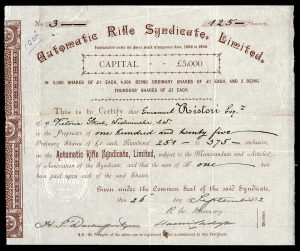 No 3 125 Shares.
Automatic Rifle Syndicate, Limited.
Incorporated under the Joint Stock Companies Acts, 1862 to 1890.
CAPITAL £5,000
IN 5,000 SHARES OF £1 EACH, 4,998 BEING ORDINARY SHARES OF £1 EACH, AND 2 BEING
FOUNDERS' SHARES OF £1 EACH.
This is to Certify that Emanuel Ristori Esqre
of Victoria Street, Westminster
is the Proprietor of one hundred and twenty five
Ordinary Shares of £1 each, Numbered 251 to 375 inclusive
in the Automatic Rifle Syndicate, Limited, subject to the Memorandum and Articles
of Association of the Syndicate, and that the sum of £ one has been
paid up on each of the said Shares.
Given under the Common Seal of the said Syndicate,
this 26 day of September 1892